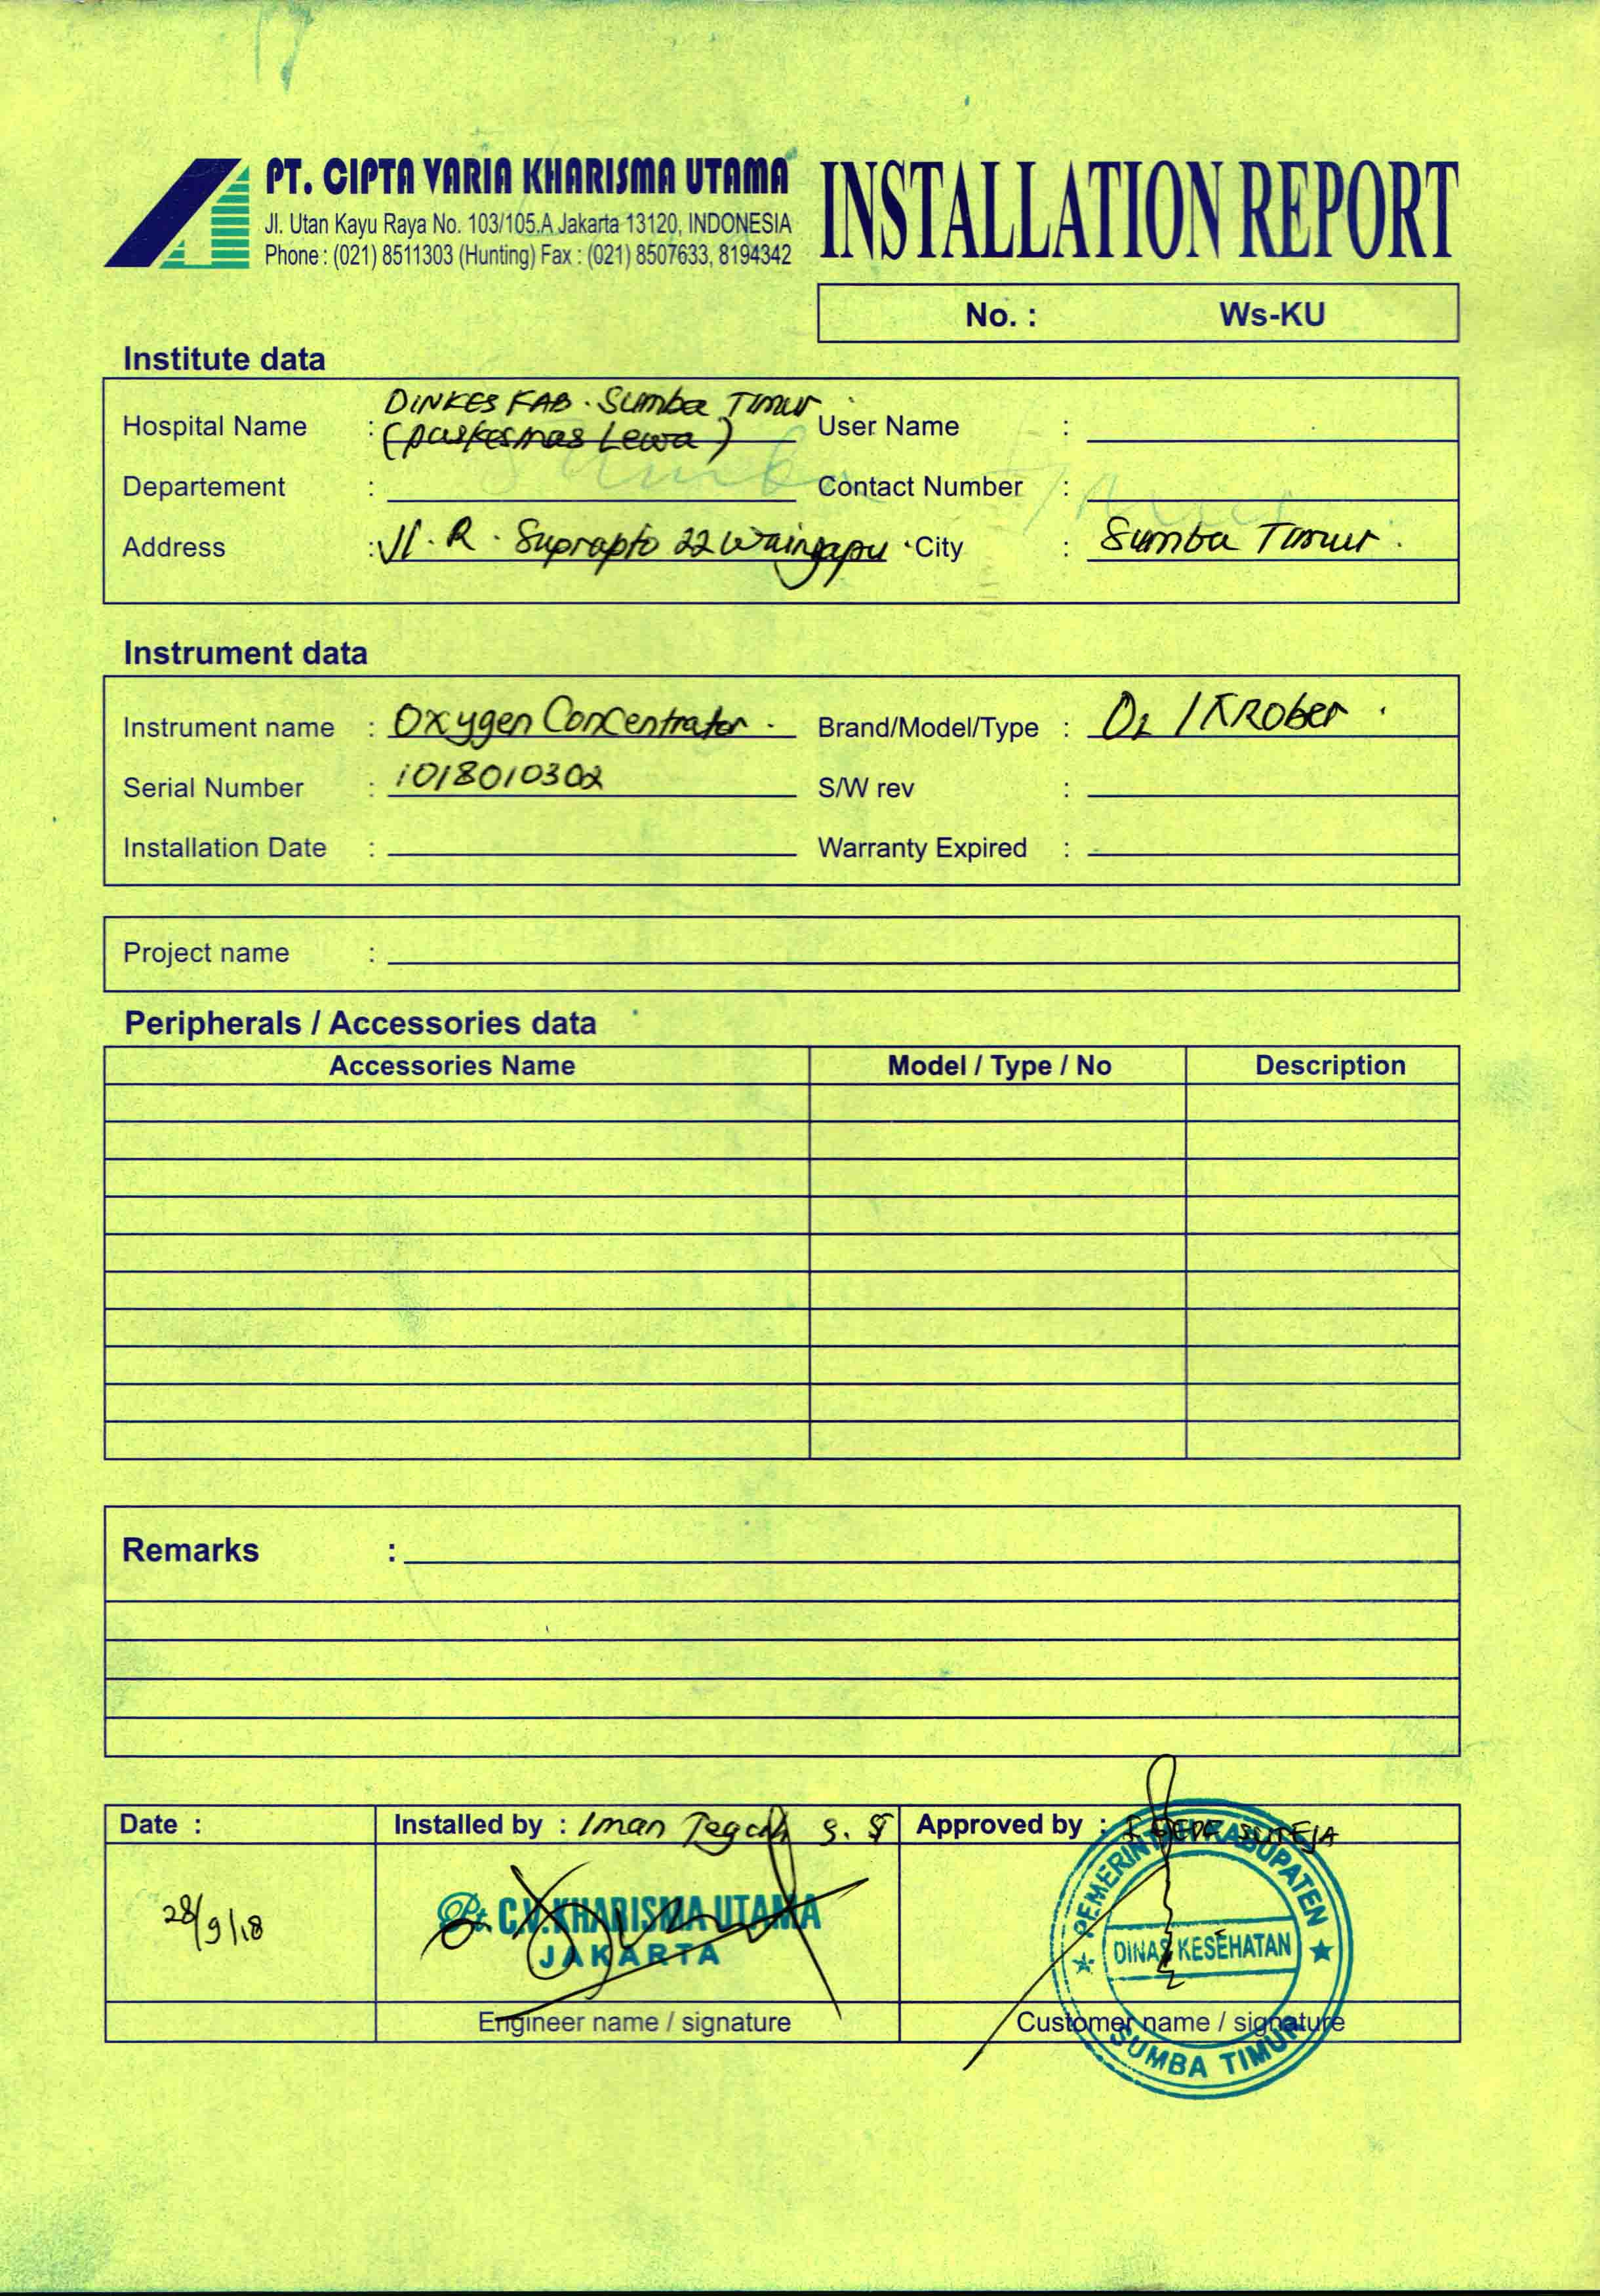 PT. CIPTA VARIA KHARISMA UTAMA
Jl. Utan Kayu Raya No. 103/105.A Jakarta 13120, INDONESIA
Phone : (021) 8511303 (Hunting) Fax : (021) 8507633, 8194342
INSTALLATION REPORT
No. : Ws-KU
Institute data
DINKES KAB. Sumba Timur
Hospital Name : (puskesmas Lewa) User Name :
Departement : Contact Number :
Address : Jl. R. Suprapto 22 Waingapu. City : Sumba Timur.
Instrument data
Instrument name : Oxygen Concentrator. Brand/Model/Type : O2 / KRober.
Serial Number : 1018010302 S/W rev :
Installation Date : Warranty Expired :
Project name :
Peripherals / Accessories data
Accessories Name Model / Type / No Description
Remarks :
Date : Installed by : Iman Teguh S. Approved by : I GEDE SUTEJA
28/9/18
Pt. C.V. KHARISMA UTAMA
JAKARTA
PEMERINTAH KABUPATEN
DINAS KESEHATAN
SUMBA TIMUR
Engineer name / signature Customer name / signature